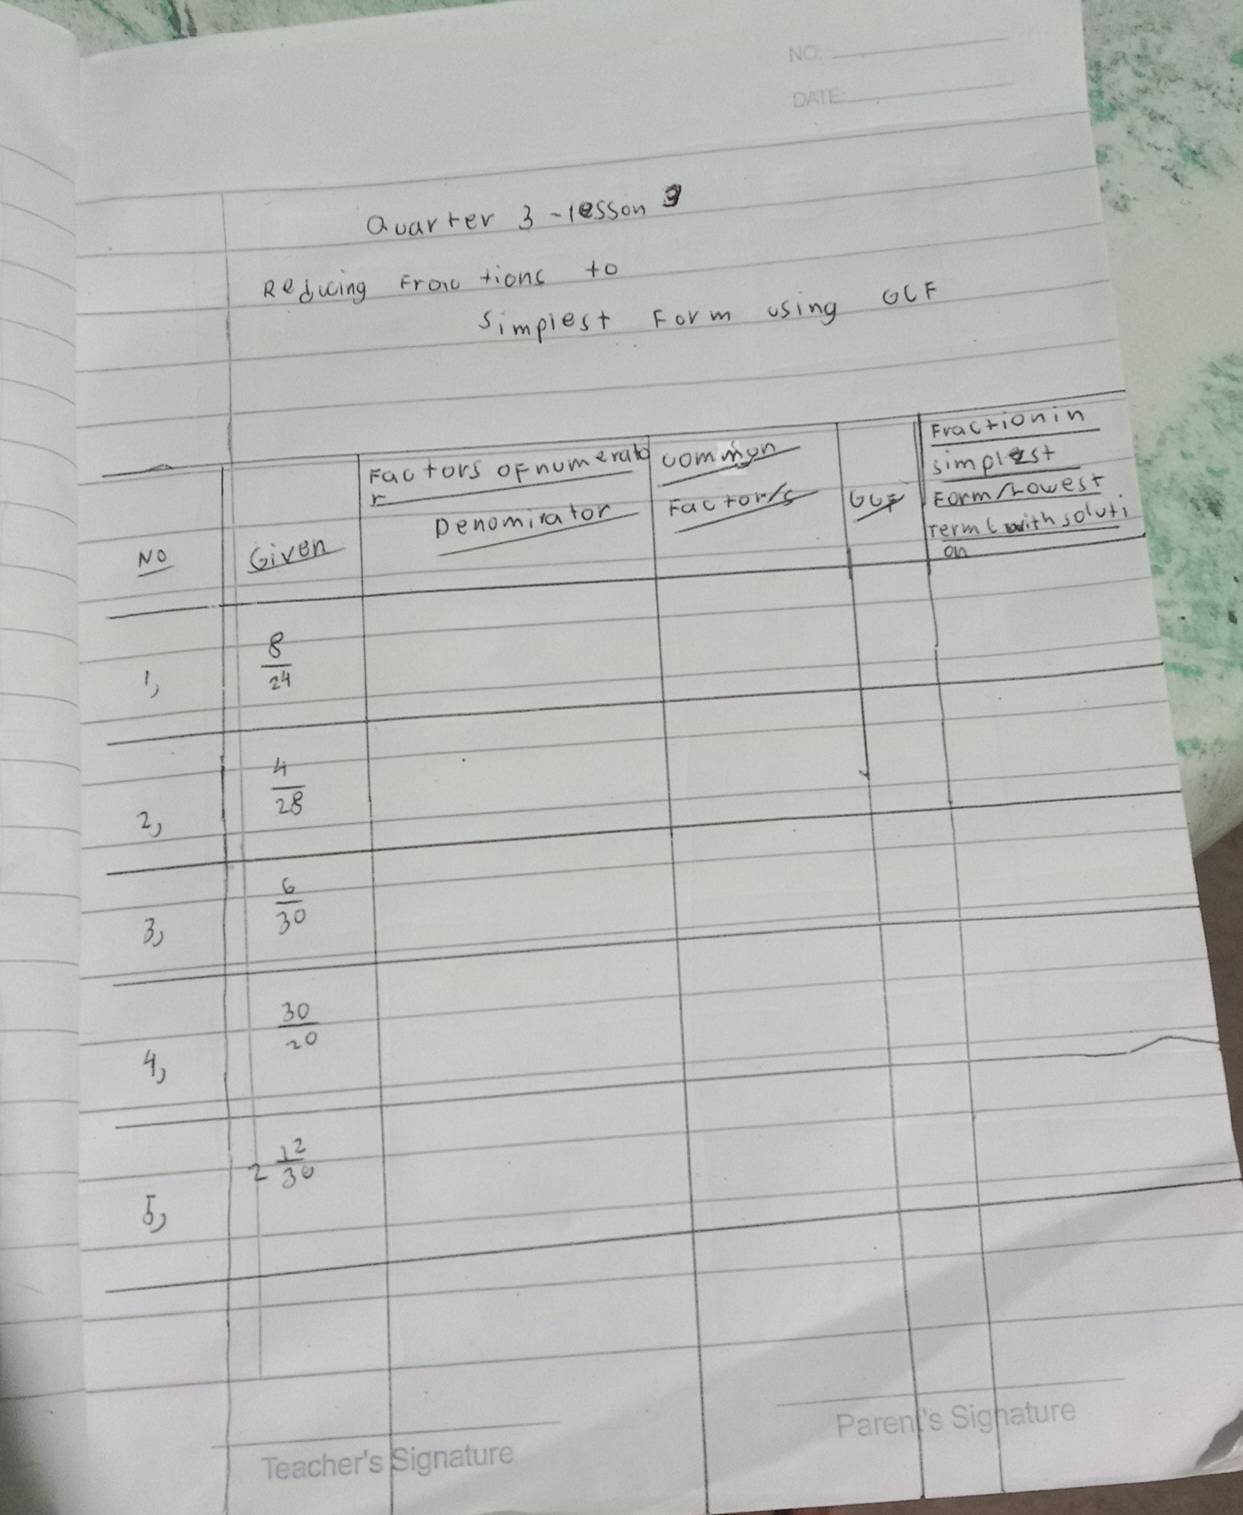 NO:
DATE:
Quarter 3 - lesson 9
Reducing Fractions to
Simplest Form using GCF
NO
Given
Factors OF numerato
r
Denominator
common
Factor/s
GCF
Fraction in
simplest
Form/Lowest
Term (with soluti
on
1, 8/24
2, 4/28
3, 6/30
4, 30/20
5, 2 12/30
Teacher's Signature
Parent's Signature